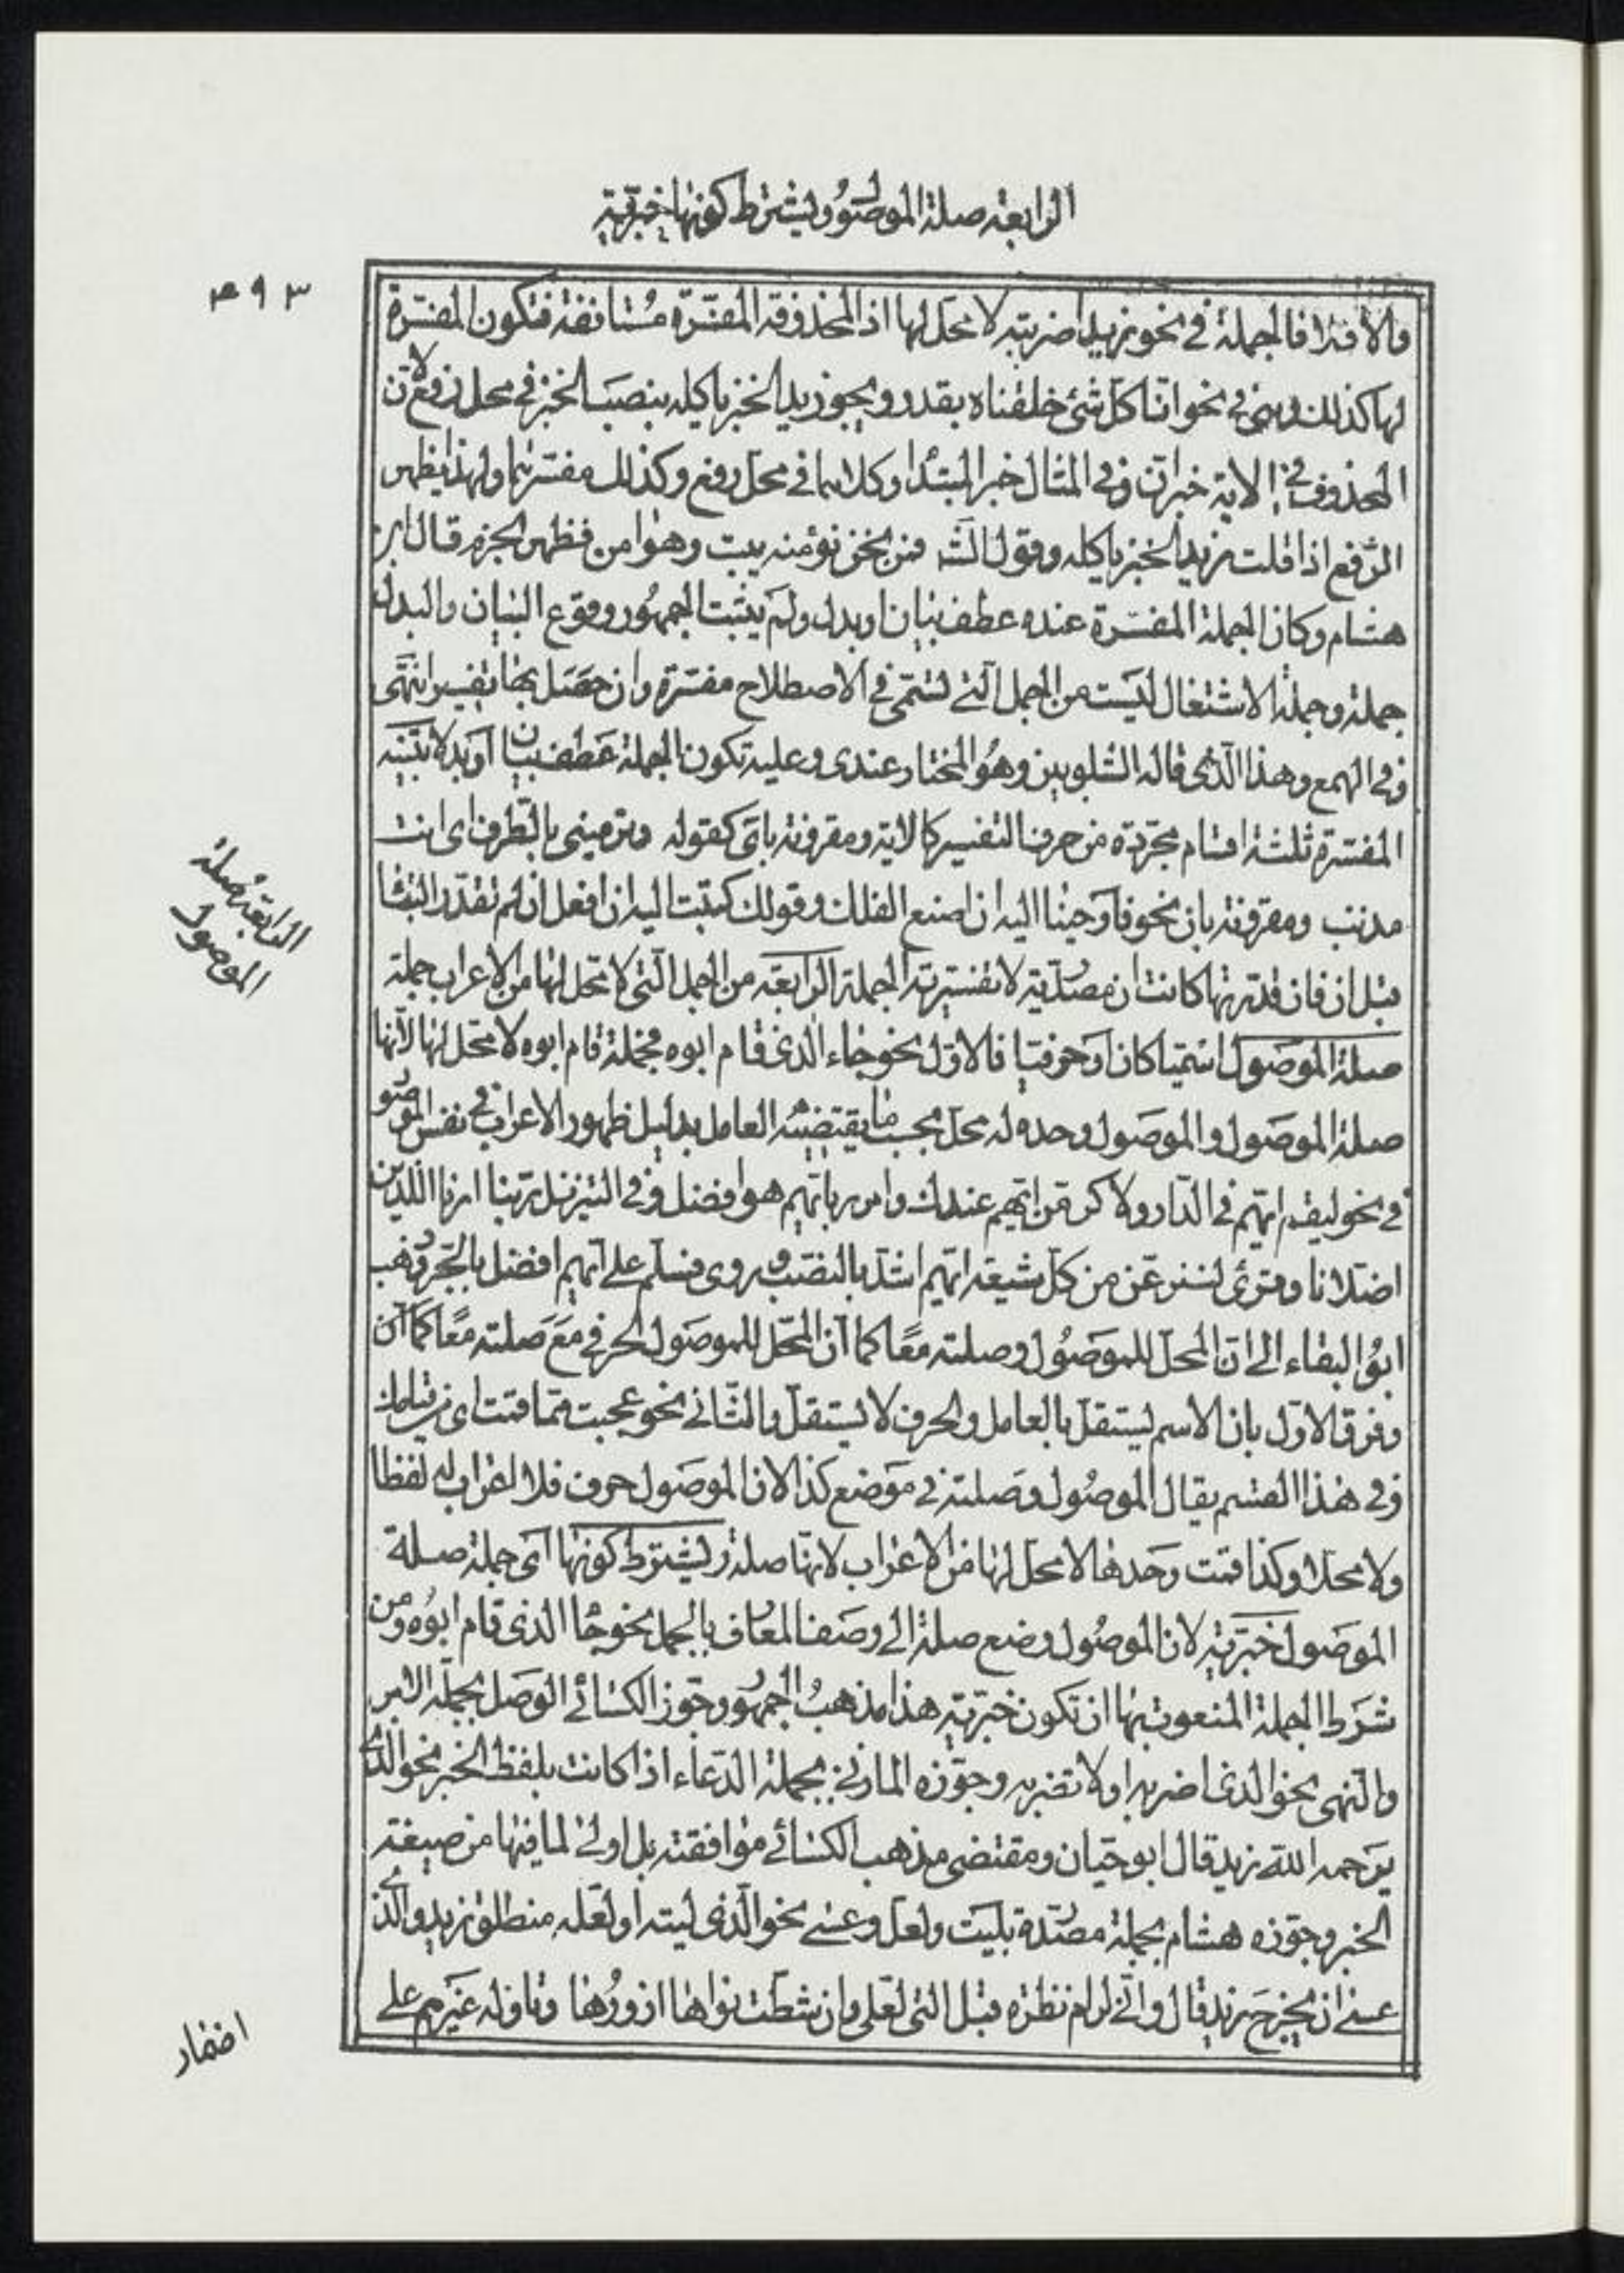 الرابعة صلة الموصول ويشترط كونها خبرية
۳۹۳
والا فلا فالجملة في نحو زيدا ضربته لا محل لها اذ المحذوفة المفسّرة مستانفة فتكون المفسّرة
لها كذلك وهي في نحو انّا كلّ شئ خلقناه بقدر ويجوز زيد الخبز ياكله بنصب الخبز في محل رفع لانّ
المحذوف في الاية خبر انّ وفي المثال خبر المبتدا وكلاهما في محل رفع وكذلك مفسّرهما ولهذا يظهر
الرّفع اذا قلت زيد الخبز ياكله وقول الشه فمن نحن نؤمنه يبت وهو امن فظهر الجزم قال ابن
هشام وكان الجملة المفسّرة عنده عطف بيان او بدل ولم يثبت الجمهور وقوع البيان والبدل
جملة وجملة الاشتغال ليست من الجمل الّتي تسمّى في الاصطلاح مفسّرة وان حصل بها تفسير انتهى
وفي الهمع وهذا الّذي قاله الشلوبين وهو المختار عندي وعليه تكون الجملة عطف بيان او بدلا تنبيه
المفسّرة ثلثة اقسام مجرّدة من حرف التفسير كالاية ومقرونة باي كقوله وترمينني بالطرف اي انت
مذنب ومقرونة بان نحو فاوحينا اليه ان اصنع الفلك وقولك كتبت اليه ان افعل ان لم تقدّر الباء
قبل ان فان قدّرتها كانت ان مصدّرية لا تفسيرية الجملة الرابعة من الجمل الّتي لا محل لها من الاعراب جملة
صلة الموصول اسميا كان او حرفيا فالاوّل نحو جاء الّذي قام ابوه فجملة قام ابوه لا محل لها لانّها
صلة الموصول والموصول وحده له محل بحسب ما يقتضيه العامل بدليل ظهور الاعراب في نفس الموصو
في نحو ليقم ايّهم في الدّار ولاكرمنّ ايّهم عندك وامرر بايّهم هو افضل وفي التنزيل ربّنا ارنا اللذين
اضلّانا وقرئ لننزعنّ من كلّ شيعة ايّهم اشدّ بالنصب وروي فسلّم على ايّهم افضل بالجرّ وذهب
ابو البقاء الى انّ المحل للموصول وصلته معًا كما انّ المحل للموصول الحرفي مع صلته معًا كما انّ
وفرق الاوّل بان الاسم يستقلّ بالعامل والحرف لا يستقلّ والثّاني نحو عجبت ممّا قمت اي من قيامك
وفي هذا القسم يقال الموصول وصلته في موضع كذا لان الموصول حرف فلا اعراب له لفظا
ولا محلا وكذا قمت وحدها لا محل لها من الاعراب لانها صلة ويشترط كونها اي جملة صلة
الموصول خبريّة لان الموصول وضع صلة الى وصف المعارف بالجمل نحو جا الذي قام ابوه ومن
شرط الجملة المنعوت بها ان تكون خبريّة هذا مذهب الجمهور وجوّز الكسائي الوصل بجملة الامر
والنهي نحو الذي اضربه او لا تضربه وجوّزه المازني بجملة الدّعاء اذا كانت بلفظ الخبر نحو الذي
يرحمه الله زيد قال ابو حيّان ومقتضى مذهب الكسائي موافقته بل اولى لما فيها من صيغة
الخبر وجوّزه هشام بجملة مصدّرة بليت ولعل وعسى نحو الّذي ليته او لعلّه منطلق زيد والّذي
عسى ان يخرج زيد قال وانّي لرام نظرة قبل التي لعلي وان شطت نواها ازورها وتاوله غيرهم على
الرابعة صلة
الموصول
اضمار